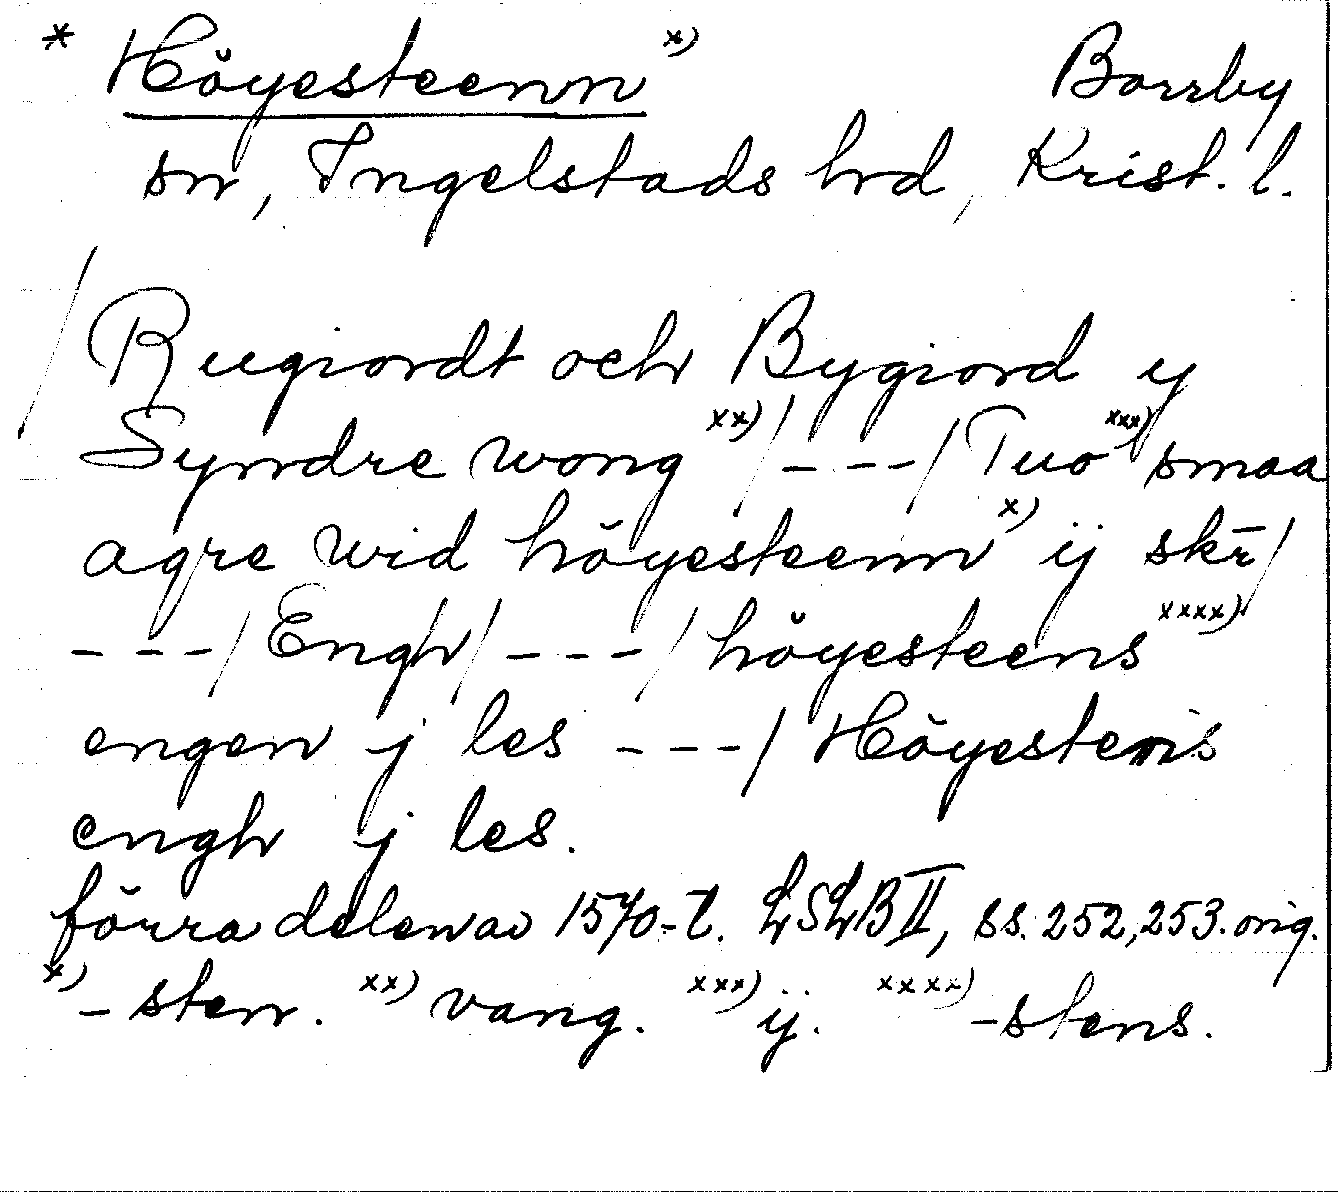 * Höyesteenn x) Borrby
sn, Ingelstads hrd, Krist. l.
/Rugiordt och Bygiord y
Syndre wong xx)/---/Tuo xxx) smaa
agre wid höyesteenn x) ij skr̄/
---/Engh/---/höyesteens xxxx)
engen j les ---/Höyestens
engh j les.
förra delen av 1570-t. LSLB II, ss. 252, 253. orig.
x) -sten. xx) vang. xxx) ij. xxxx) -stens.